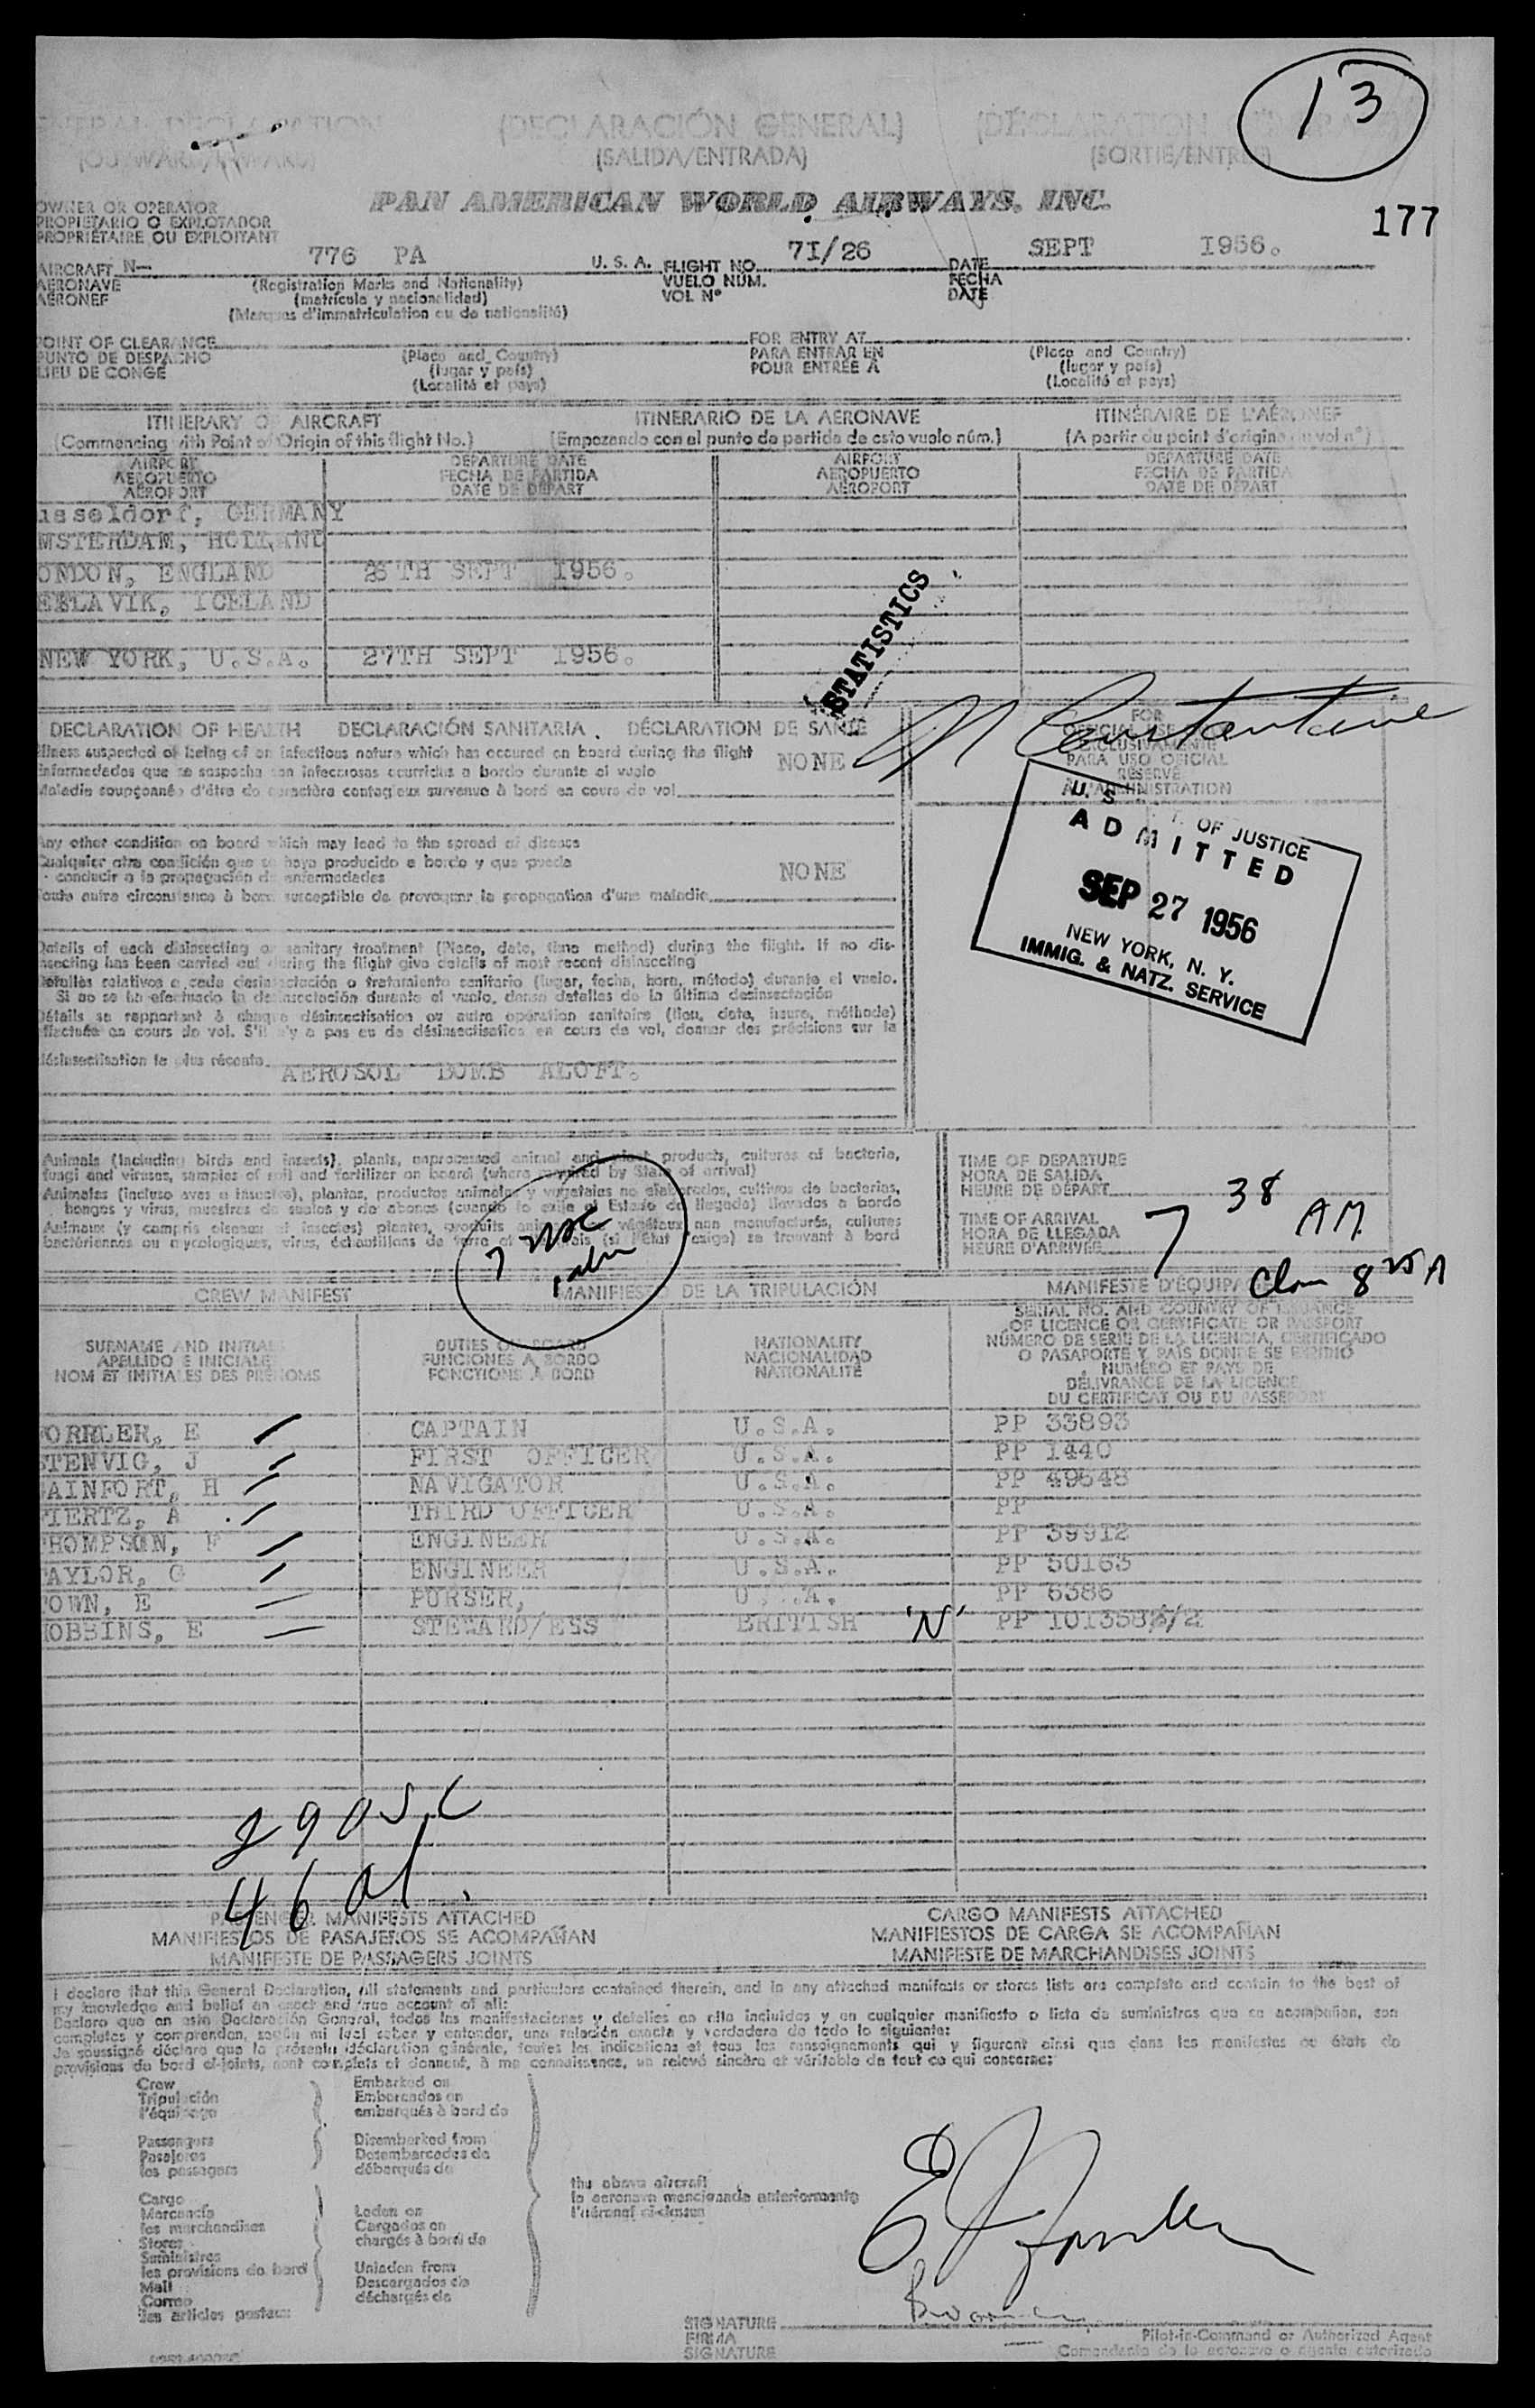 13
(DECLARACIÓN GENERAL)
(SALIDA/ENTRADA)
PAN AMERICAN WORLD AIRWAYS, INC.
177
OWNER OR OPERATOR
PROPIETARIO O EXPLOTADOR
PROPRIÉTAIRE OU EXPLOITANT
AIRCRAFT N— 776 PA U. S. A. FLIGHT NO. 71/26 DATE SEPT 1956.
AERONAVE (Registration Marks and Nationality) VUELO NÚM. FECHA
AÉRONEF (matrícula y nacionalidad) VOL Nº DATE
(Marques d'immatriculation ou de nationalité)
OINT OF CLEARANCE FOR ENTRY AT
PUNTO DE DESPACHO (Place and Country) PARA ENTRAR EN (Place and Country)
LIEU DE CONGE (lugar y país) POUR ENTRÉE A (lugar y país)
(Localité et pays) (Localité et pays)
ITINERARY OF AIRCRAFT ITINERARIO DE LA AERONAVE ITINÉRAIRE DE L'AÉRONEF
(Commencing with Point of Origin of this flight No.) (Empezando con el punto de partida de esto vuelo núm.) (A partir du point d'origine du vol nº)
AIRPORT DEPARTURE DATE AIRPORT DEPARTURE DATE
AEROPUERTO FECHA DE PARTIDA AEROPUERTO FECHA DE PARTIDA
AÉROPORT DATE DE DÉPART AÉROPORT DATE DE DÉPART
usseldorf, GERMANY
MSTERDAM, HOLLAND
ONDON, ENGLAND 26TH SEPT 1956.
EFLAVIK, ICELAND
NEW YORK, U.S.A. 27TH SEPT 1956.
STATISTICS
DECLARATION OF HEALTH DECLARACIÓN SANITARIA. DÉCLARATION DE SANTÉ
Illness suspected of being of an infectious nature which has occured on board during the flight NONE
Enfermedades que se sospecha son infecciosas ocurridas a bordo durante el vuelo
Maladie soupçonnée d'être de caractère contagieux survenue à bord en cours de vol
N Constantine
FOR
OFFICIAL USE ONLY
EXCLUSIVAMENTE
PARA USO OFICIAL
RÉSERVÉ
À L'ADMINISTRATION
Any other condition on board which may lead to the spread of disease
Cualquier otra condición que se haya producido a bordo y que pueda
conducir a la propagación de enfermedades NONE
Toute autre circonstance à bord susceptible de provoquer la propagation d'une maladie
U. S. OF JUSTICE
ADMITTED
SEP 27 1956
NEW YORK, N. Y.
IMMIG. & NATZ. SERVICE
Details of each disinsecting or sanitary treatment (Place, date, time method) during the flight. If no dis-
insecting has been carried out during the flight give details of most recent disinsecting
Detalles relativos a cada desinsectación o tratamiento sanitario (lugar, fecha, hora, método) durante el vuelo.
Si no se ha efectuado la desinsectación durante el vuelo, dense detalles de la última desinsectación
Détails se rapportant à chaque désinsectisation ou autre opération sanitaire (lieu, date, heure, méthode)
effectuée en cours de vol. S'il n'y a pas eu de désinsectisation en cours de vol, donner des précisions sur la
désinsectisation la plus récente. AEROSOL BOMB ALOFT.
Animals (including birds and insects), plants, unprocessed animal and plant products, cultures of bacteria,
fungi and viruses, samples of soil and fertilizer on board (where required by State of arrival)
Animales (incluso aves e insectos), plantas, productos animales y vegetales no elaborados, cultivos de bacterias,
hongos y virus, muestras de suelos y de abonos (cuando lo exija el Estado de llegada) llevados a bordo
Animaux (y compris oiseaux et insectes) plantes, produits animaux végétaux non manufacturés, cultures
bactériennes ou mycologiques, virus, échantillons de terre et engrais (si l'État l'exige) se trouvant à bord
TIME OF DEPARTURE
HORA DE SALIDA
HEURE DE DÉPART
TIME OF ARRIVAL
HORA DE LLEGADA
HEURE D'ARRIVÉE
7 38 AM
8 25 A
CREW MANIFEST MANIFIESTO DE LA TRIPULACIÓN MANIFESTE D'ÉQUIPAGE
SURNAME AND INITIALS DUTIES ON BOARD NATIONALITY SERIAL NO. AND COUNTRY OF ISSUANCE
APELLIDO E INICIALES FUNCIONES A BORDO NACIONALIDAD OF LICENCE OR CERTIFICATE OR PASSPORT
NOM ET INITIALES DES PRÉNOMS FONCTIONS À BORD NATIONALITÉ NÚMERO DE SERIE DE LA LICENCIA, CERTIFICADO
O PASAPORTE Y PAÍS DONDE SE EXPIDIÓ
NUMÉRO ET PAYS DE
DÉLIVRANCE DE LA LICENCE
DU CERTIFICAT OU DU PASSEPORT
ORRLER, E CAPTAIN U.S.A. PP 33893
TENVIG, J FIRST OFFICER U.S.A. PP 1440
AINFORT, H NAVIGATOR U.S.A. PP 49648
IERTZ, A THIRD OFFICER U.S.A. PP
HOMPSON, F ENGINEER U.S.A. PP 39912
AYLOR, G ENGINEER U.S.A. PP 50163
OWN, E PURSER, U. .A. PP 6386
OBBINS, E STEWARD/ESS BRITISH 'N' PP
PASSENGER MANIFESTS ATTACHED CARGO MANIFESTS ATTACHED
MANIFIESTOS DE PASAJEROS SE ACOMPAÑAN MANIFIESTOS DE CARGA SE ACOMPAÑAN
MANIFESTE DE PASSAGERS JOINTS MANIFESTE DE MARCHANDISES JOINTS
I declare that this General Declaration, All statements and particulars contained therein, and in any attached manifests or stores lists are complete and contain to the best of
my knowledge and belief an exact and true account of all:
Declaro que en esta Declaración General, todas las manifestaciones y detalles en ella incluidos y en cualquier manifiesto o lista de suministros que se acompañan, son
completos y comprenden, según mi leal saber y entender, una relación exacta y verdadera de todo lo siguiente:
Je soussigné déclare que la présente déclaration générale, toutes les indications et tous les renseignements qui y figurent ainsi que dans les manifestes ou états de
provisions de bord ci-joints, sont complets et donnent, à ma connaissance, un relevé sincère et véritable de tout ce qui concerne:
Crew Embarked on
Tripulación Embarcados en
l'équipage embarqués à bord de
Passengers Disembarked from
Pasajeros Desembarcados de
les passagers débarqués de
the above aircraft
la aeronave mencionada anteriormente
l'aéronef ci-dessus
Cargo
Mercancía Laden on
les marchandises Cargados en
Stores chargés à bord de
Suministros
les provisions de bord Unladen from
Mail Descargados de
Correo déchargés de
les articles postaux
SIGNATURE
FIRMA Pilot-in-Command or Authorized Agent
SIGNATURE Comandante de la aeronave o agente autorizado